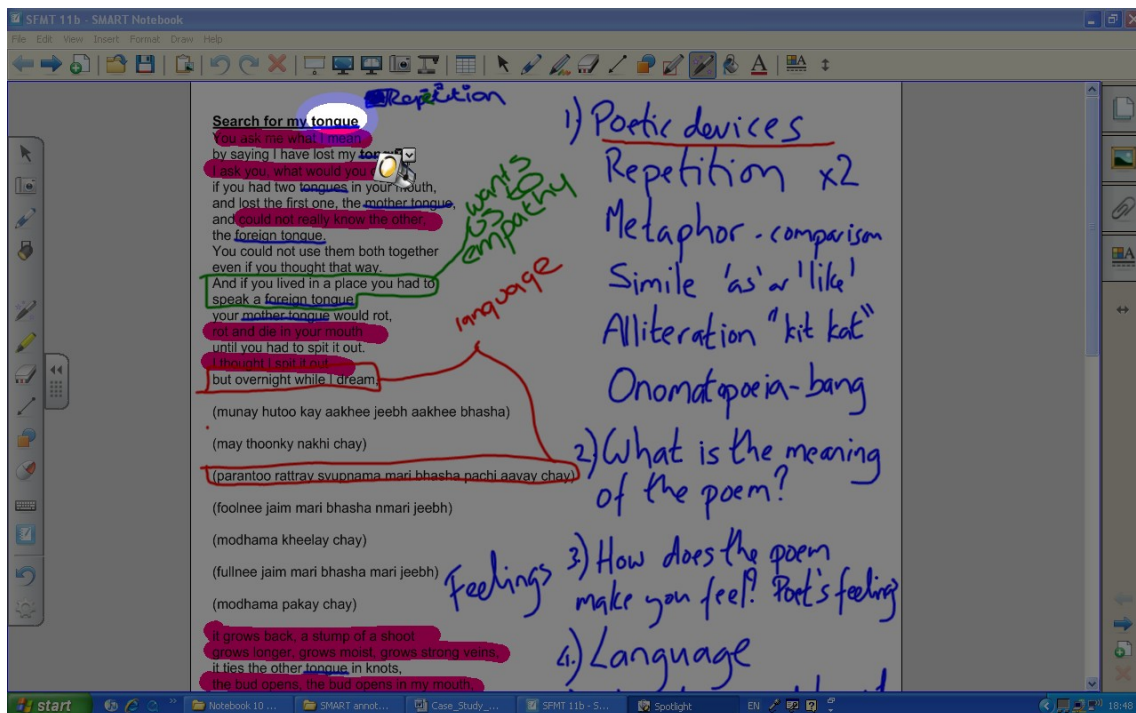 SFMT 11b - SMART Notebook
File Edit View Insert Format Draw Help
Repetition
Search for my tongue
You ask me what I mean
by saying I have lost my tongue
I ask you, what would you
if you had two tongues in your mouth,
and lost the first one, the mother tongue,
and could not really know the other,
the foreign tongue.
You could not use them both together
even if you thought that way.
And if you lived in a place you had to
speak a foreign tongue
your mother tongue would rot,
rot and die in your mouth
until you had to spit it out.
I thought I spit it out
but overnight while I dream,
(munay hutoo kay aakhee jeebh aakhee bhasha)
(may thoonky nakhi chay)
(parantoo rattray svupnama mari bhasha pachi aavay chay)
(foolnee jaim mari bhasha nmari jeebh)
(modhama kheelay chay)
(fullnee jaim mari bhasha mari jeebh)
(modhama pakay chay)
it grows back, a stump of a shoot
grows longer, grows moist, grows strong veins,
it ties the other tongue in knots,
the bud opens, the bud opens in my mouth,
wants
us to
empathy
language
Feelings
1) Poetic devices
Repetition x2
Metaphor - comparison
Simile 'as' or 'like'
Alliteration "kit kat"
Onomatopoeia - bang
2) What is the meaning
of the poem?
3) How does the poem
make you feel? Poet's feeling
4.) Language
start
Notebook 10 ...
SMART annot...
Case_Study_...
SFMT 11b - S...
Spotlight
EN
18:48